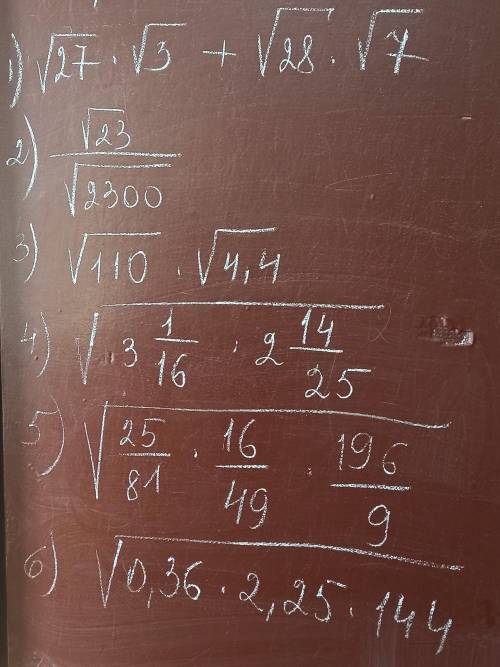 1) √27 · √3 + √28 · √7
2) √23 / √2300
3) √110 · √4,4
4) √(3 1/16 · 2 14/25)
5) √(25/81 · 16/49 · 196/9)
6) √(0,36 · 2,25 · 144)